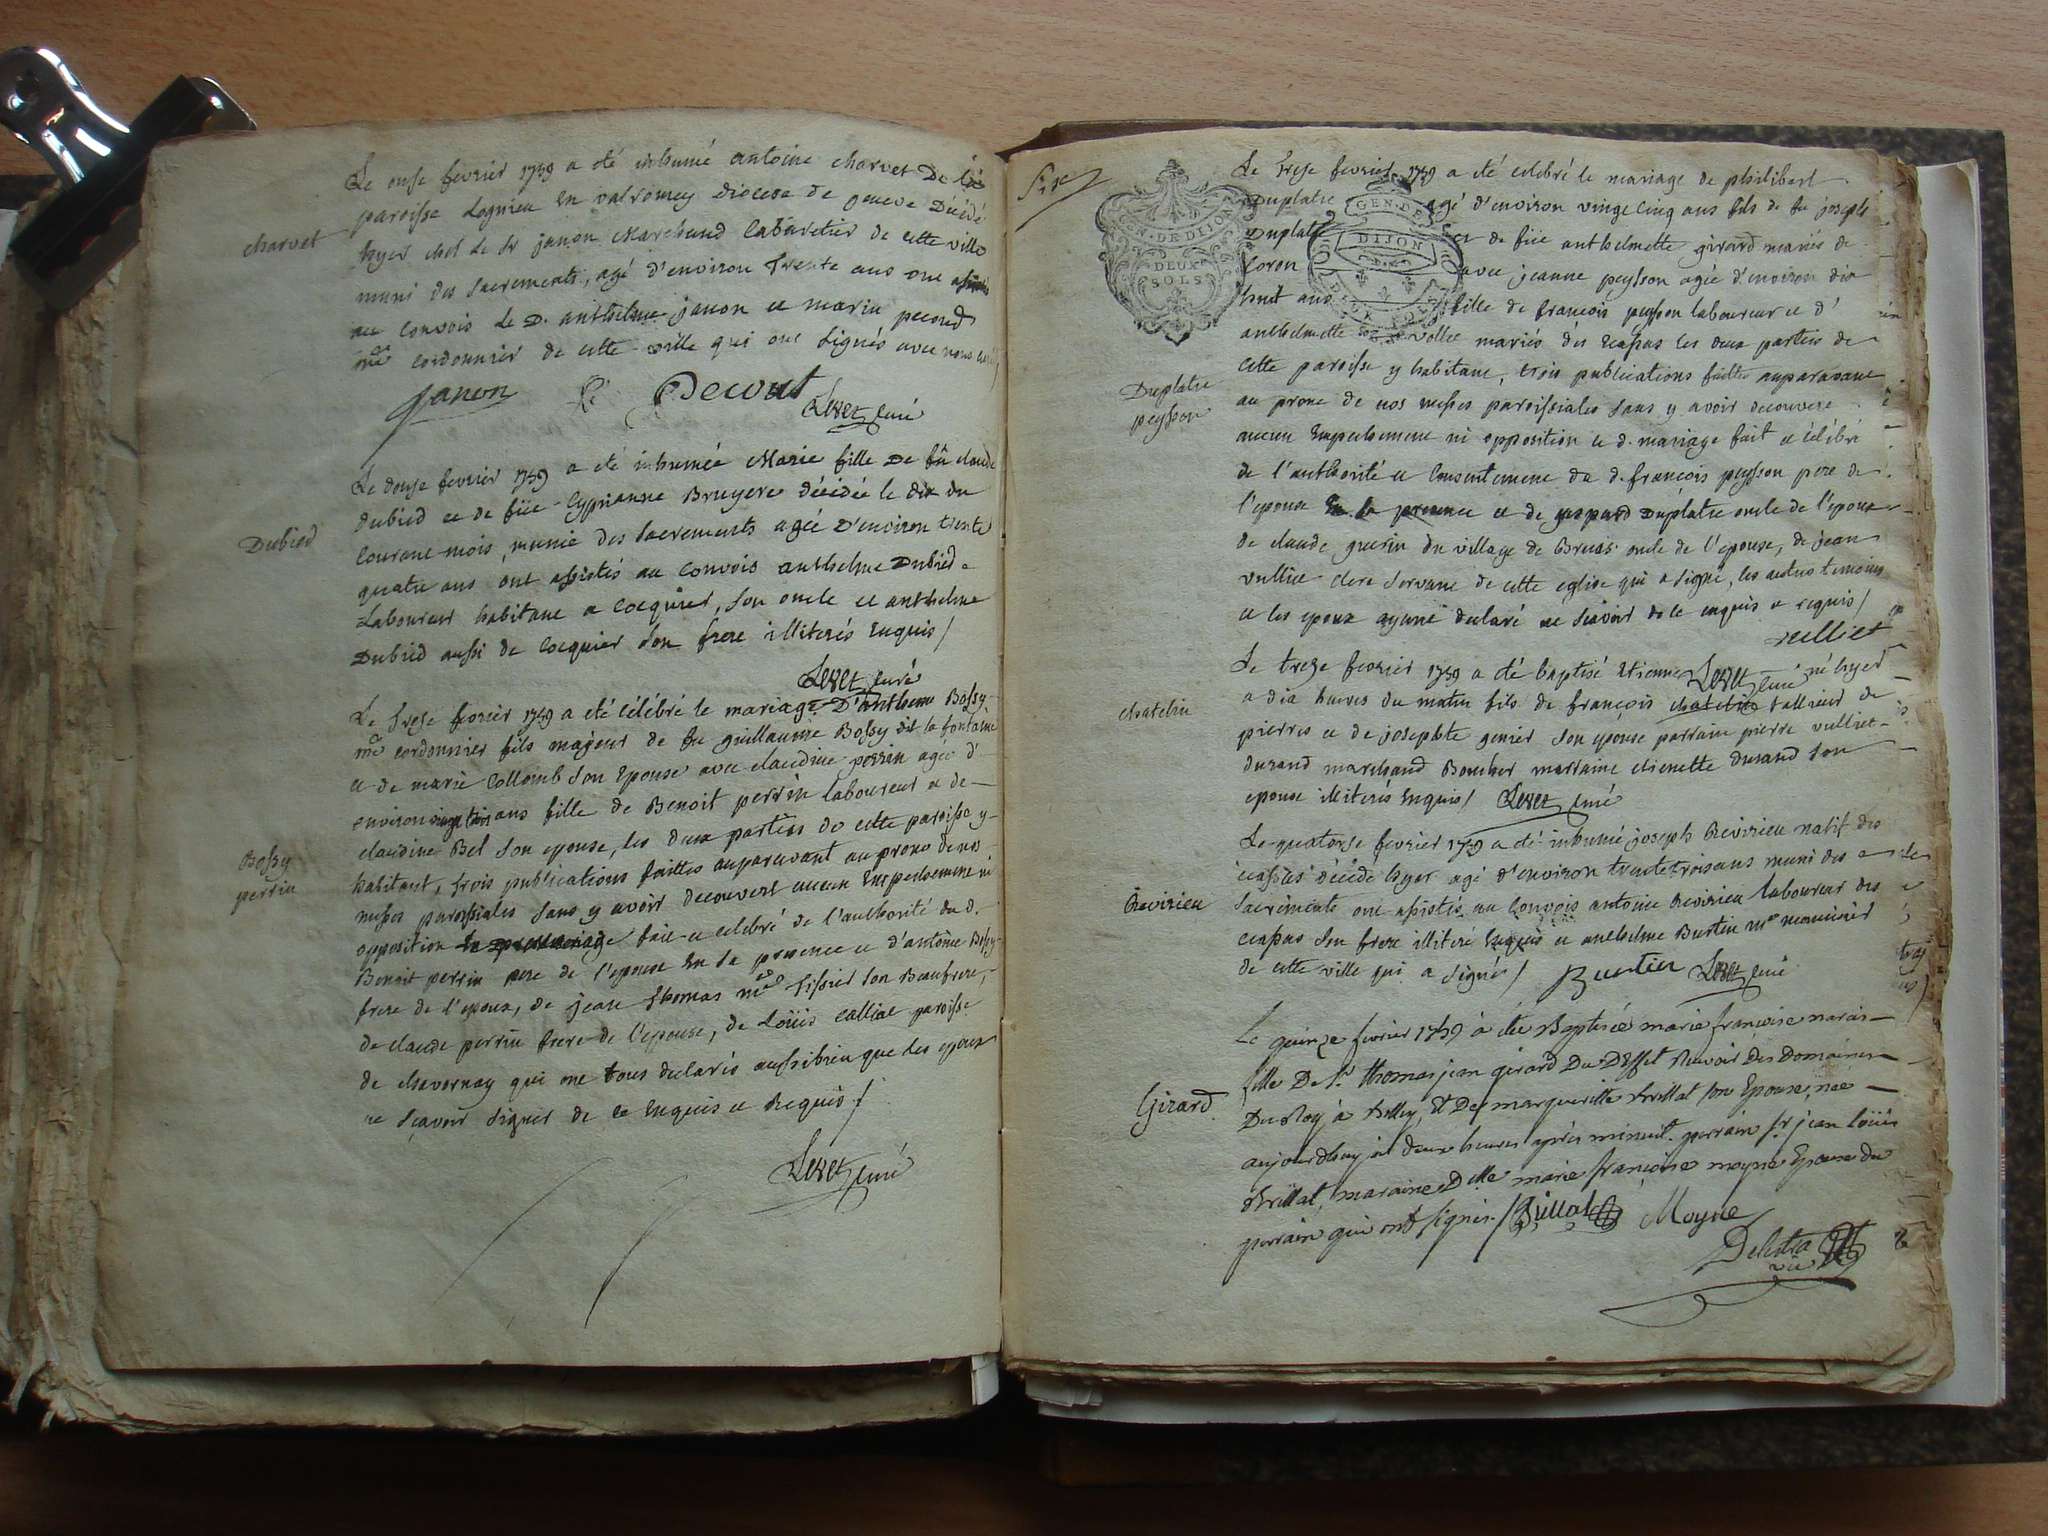 Le onse fevrier 1759 a été inhumé antoine charvet De la
paroisse Lognieu En valromey Diocese de geneve Décédé
charvet
hyer chez le Sr janon Marchand Cabaretier de cette ville
muni des sacrements, agé d'environ trente ans ont assistés
au convois le D. anthelme janon et marin pecoud
me cordonnier de cette ville qui ont signés avec nous curé
janon Pecout
Levet curé
Le douse fevrier 1759 a été inhumée Marie fille De fû claude
Dubied
dubied et de füe Cyprianne Bruyere décédée le dix du
courant mois, munie des sacrements agée D'environ trente
quatre ans ont assistés au convois anthelme Dubied
Laboureur habitant a Cocquier, son oncle et anthelme
Dubied aussi de Cocquier son frere illiterés Enquis /
Levet curé
Le treze fevrier 1759 a été célébré le mariage D'anthelme Bossy
me cordonnier fils majeur de fu guillaume Bossy dit la fontaine
et de marie Collomb son Epouse avec claudine perrin agée d'
environ vingt trois ans fille de Benoit perrin laboureur et de
claudine Bel son epouse, les deux parties de cette paroisse y
Bossy
perrin
habitant, trois publications faittes auparavant au prone de nos
messes paroissiales sans y avoir decouvert aucun Empechement ni
opposition fait et celebré de l'authorité du d.
Benoit perrin pere de l'epouse En sa presence et d'antoine Bossy
frere de l'epoux, de jean thomas me tissier son Beaufrere,
de claude perrin frere de l'epouse, de Loüis calliat paroisse
de chavornay qui ont tous declarés aussibien que les epoux
ne sçavoir signer de ce Enquis et Requis /
Levet curé
GEN. DE DIJON
DEUX
SOLS
GEN. DE
DIJON
Le treze fevrier 1759 a été celebré le mariage de philibert
Duplatre agé d'environ vingt cinq ans fils de fu joseph
Duplatre et de füe anthelmette girard mariés de
Coron avec jeanne peysson agée d'environ dix
huit ans fille de francois peysson laboureur et d'
anthelmette vollet mariés des Ecassas les deux parties de
cette paroisse y habitant, trois publications faittes auparavant
Duplatre
peysson
au prone de nos messes paroissiales sans y avoir decouvert
aucun Empechement ni opposition et d. mariage fait et célébré
de l'authorité et consentement du d. francois peysson pere de
l'epouse En sa presence et de gaspard Duplatre oncle de l'epoux
de claude guerin du village de Brens oncle de l'epouse, de jean
vulliet clerc servant de cette eglise qui a signé, les autres temoins
et les epoux ayant declaré ne sçavoir de ce enquis et requis /
vulliet
Levet curé
Le treze fevrier 1759 a été baptisé Etienne né hyer
chatelin
a dix heures du matin fils de françois chatelin tallieur de
pierres et de josephte genier son epouse parrain pierre vulliet
durand marchand Boucher marraine etienette durand son
epouse illiterés Enquis / Levet curé
Le quatorse fevrier 1759 a été inhumé joseph Revirieu natif des
écassas décédé hyer agé d'environ trente trois ans muni des
Revirieu
sacrements ont assistés au convois antoine Revirieu laboureur des
ecassas son frere illiteré Enquis et anthelme Burtin me menuisier
de cette ville qui a signé / Burtin Levet curé
Le quinze fevrier 1759 à été Baptisée marie françoise narais
Girard
fille De Sr. thomas jean girard Du Deffet Receveur des Domaines
Du Roy à belley, Et De marguerite brillat son Epouse, née
aujourdhuy à deux heures après minuit. parrain Sr jean loüis
brillat, maraine Delle marie françoise moyne Epouse du
parrain qui ont signés. / Brillat Moyne
Delestra
vic